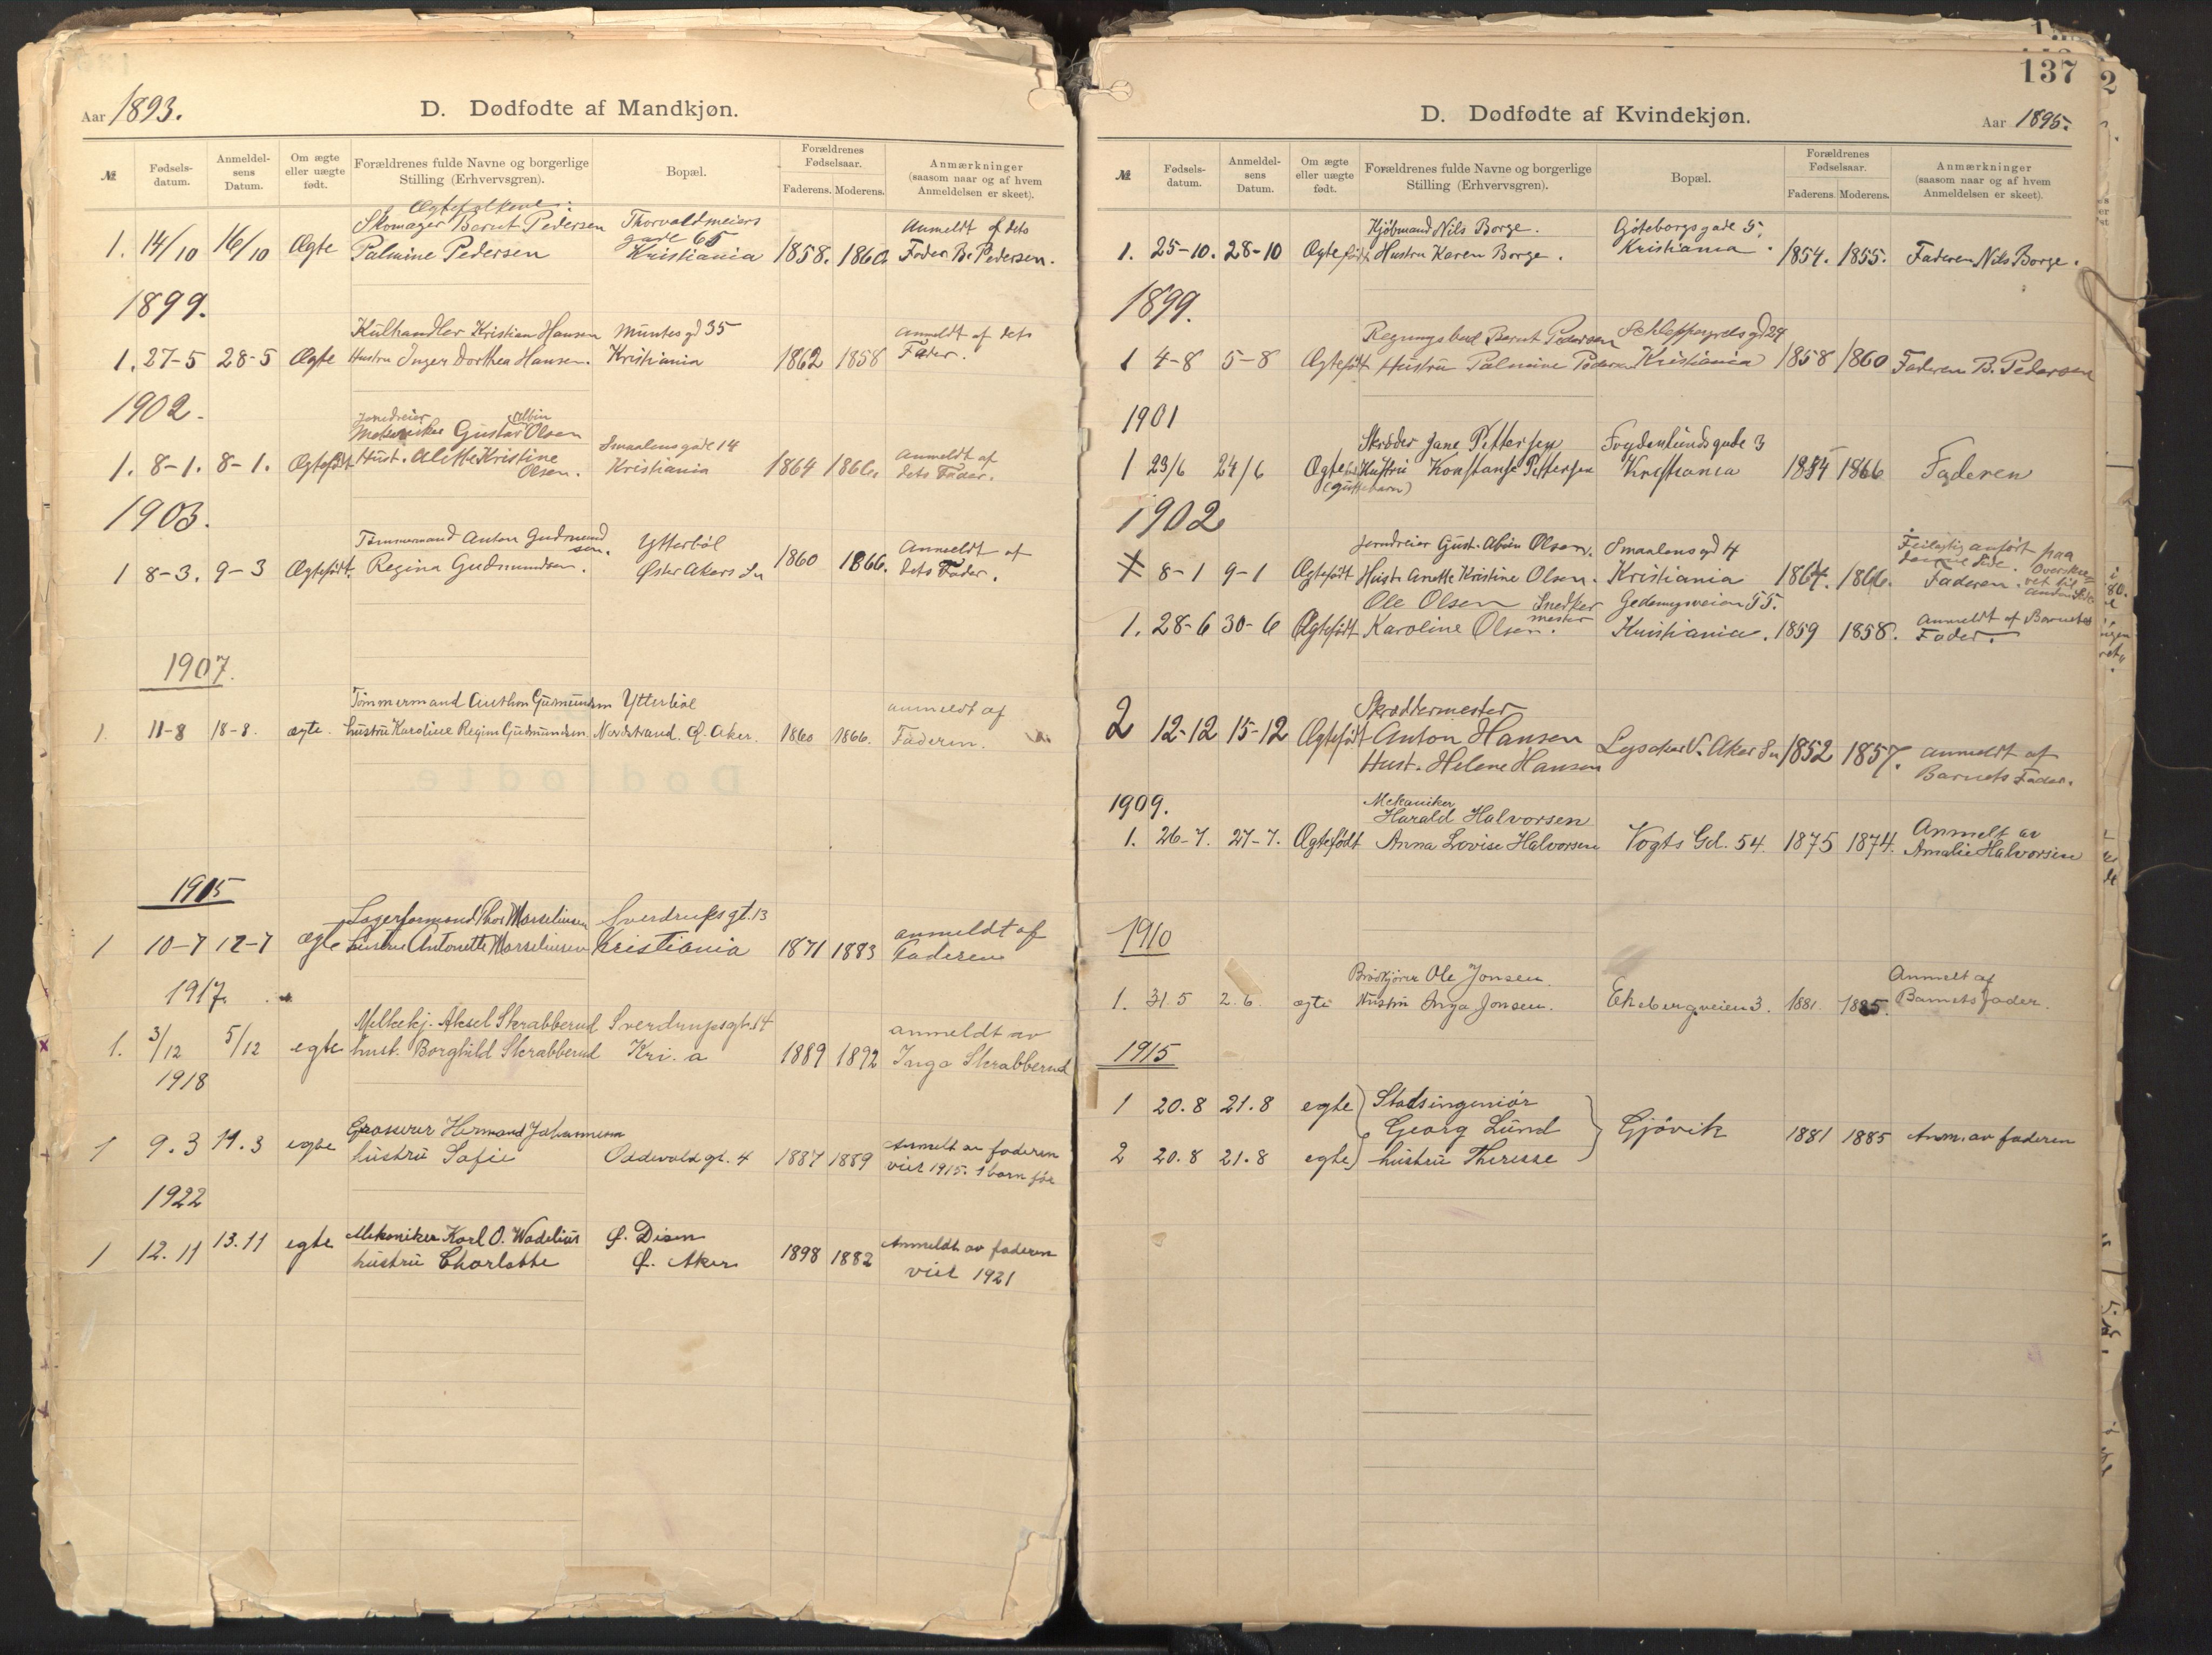 Aar 1893.
D. Dødfødte af Mandkjøn.
№
Fødsels-
datum.
Anmeldel-
sens
Datum.
Om ægte
eller uægte
født.
Forældrenes fulde Navne og borgerlige
Stilling (Erhvervsgren).
Bopæl.
Forældrenes
Fødselsaar.
Faderens.
Moderens.
Anmærkninger
(saasom naar og af hvem
Anmeldelsen er skeet).
Ægtefolkene:
Skomager Bernt Pedersen Thorvaldmeiers Anmeldt af dets
gade 65
1. 14/10 16/10 Ægte Palmine Pedersen Kristiania 1858. 1860. Fader B. Pedersen.
1899.
Kulhandler Kristian Hansen Müntes gd 35 Anmeldt af dets
1. 27-5 28-5 Ægte Hustru Inger Dorthea Hansen. Kristiania 1862 1858 Fader.
1902.
Jerndreier Albin
Gustav Olsen Smaalensgade 14
1. 8-1. 8-1. Ægtefødt Hust. Alette Kristine Kristiania 1864 1866. Anmeldt af
Olsen. dets Fader.
1903.
Tømmermand Anton Gudmund Ytterböl Anmeldt af
sen.
1 8-3. 9-3 Ægtefødt. Regina Gudmundsen. Øster Akers Sn 1860 1866. dets Fader.
1907.
Tømmermand Anthon Gudmundsen Ytterböl anmeldt af
1. 11-8 18-8. ægte. hustru Karoline Regine Gudmundsen Nordstrand. Ø. Aker. 1860 1866. Faderen.
1915
Lagerformand Thor Marseliusen Sverdrups gt. 13 anmeldt af
1 10-7 12-7 ægte hustru Antonette Marseliusen Kristiania 1871 1883 Faderen
1917.
Melkekj. Aksel Skrabberud Sverdrupsgt. 14 anmeldt av
1. 3/12 5/12 egte hust. Borghild Skrabberud Kri. a 1889 1892 Inga Skrabberud
1918
Grosserer Hermand Johannesen
1 9.3 11.3 egte hustru Sofie Oddevald gt. 4 1887 1889 Anmelt av faderen
viet 1915. 1 barn før
1922
Mekaniker Karl O. Wadelius Ø. Disen Anmeldt av faderen
1 12.11 13.11 egte hustru Charlotte Ø. Aker 1898 1882 viet 1921
137
D. Dødfødte af Kvindekjøn.
Aar 1895.
№
Fødsels-
datum.
Anmeldel-
sens
Datum.
Om ægte
eller uægte
født.
Forældrenes fulde Navne og borgerlige
Stilling (Erhvervsgren).
Bopæl.
Forældrenes
Fødselsaar.
Faderens.
Moderens.
Anmærkninger
(saasom naar og af hvem
Anmeldelsen er skeet).
Kjøbmand Nils Borge. Göteborgsgade 5.
1. 25-10. 28-10 Ægtefødt Hustru Karen Borge. Kristiania. 1854. 1855. Faderen Nils Borge.
1899.
Regningsbud Bernt Pedersen Schleppegrels gd 24
1 4-8 5-8 Ægtefødt Hustru Palmine Pedersen Kristiania 1858 1860 Faderen B. Pedersen
1901
Skræder Jane Pettersen Fogdenlundsgade 3
1 23/6 24/6 Ægtefødt Hustru Konstanse Pettersen Kristiania 1854 1866 Faderen
(guttebarn)
1902
Jerndreier Gust. Albin Olsen. Smaalens gd 4 Feilagtig anført paa
denne Side. Overskre-
1 8-1 9-1 Ægtefødt Hust. Anette Kristine Olsen. Kristiania 1864. 1866. Faderen. vet til
anden Side
Ole Olsen Snedker Gedemyrsveien 55.
mester
1. 28-6 30-6 Ægtefødt Karoline Olsen. Kristiania. 1859 1858. Anmeldt af Barnets
Fader.
Skræddermester
2 12-12 15-12 Ægtefødt Anton Hansen
Hust. Helene Hansen Lysaker V. Aker Sn 1852 1857. anmeldt af
Barnets Fader.
1909.
Mekaniker
Harald Halvorsen Anmelt av
1. 26-7. 27-7. Ægtefødt Anna Lovise Halvorsen Vogts Gd. 54. 1875 1874. Amalie Halvorsen
1910
Brødkjører Ole Jonsen. Anmelt af
1. 31.5 2.6. ægte Hustru Inga Jonsen. Ekebergveien 3. 1881. 1885. Barnets fader.
1915
1 20.8 21.8 egte Stadsingeniør
Georg Lund Gjøvik 1881 1885 Anm. av faderen
2 20.8 21.8 egte hustru Therese